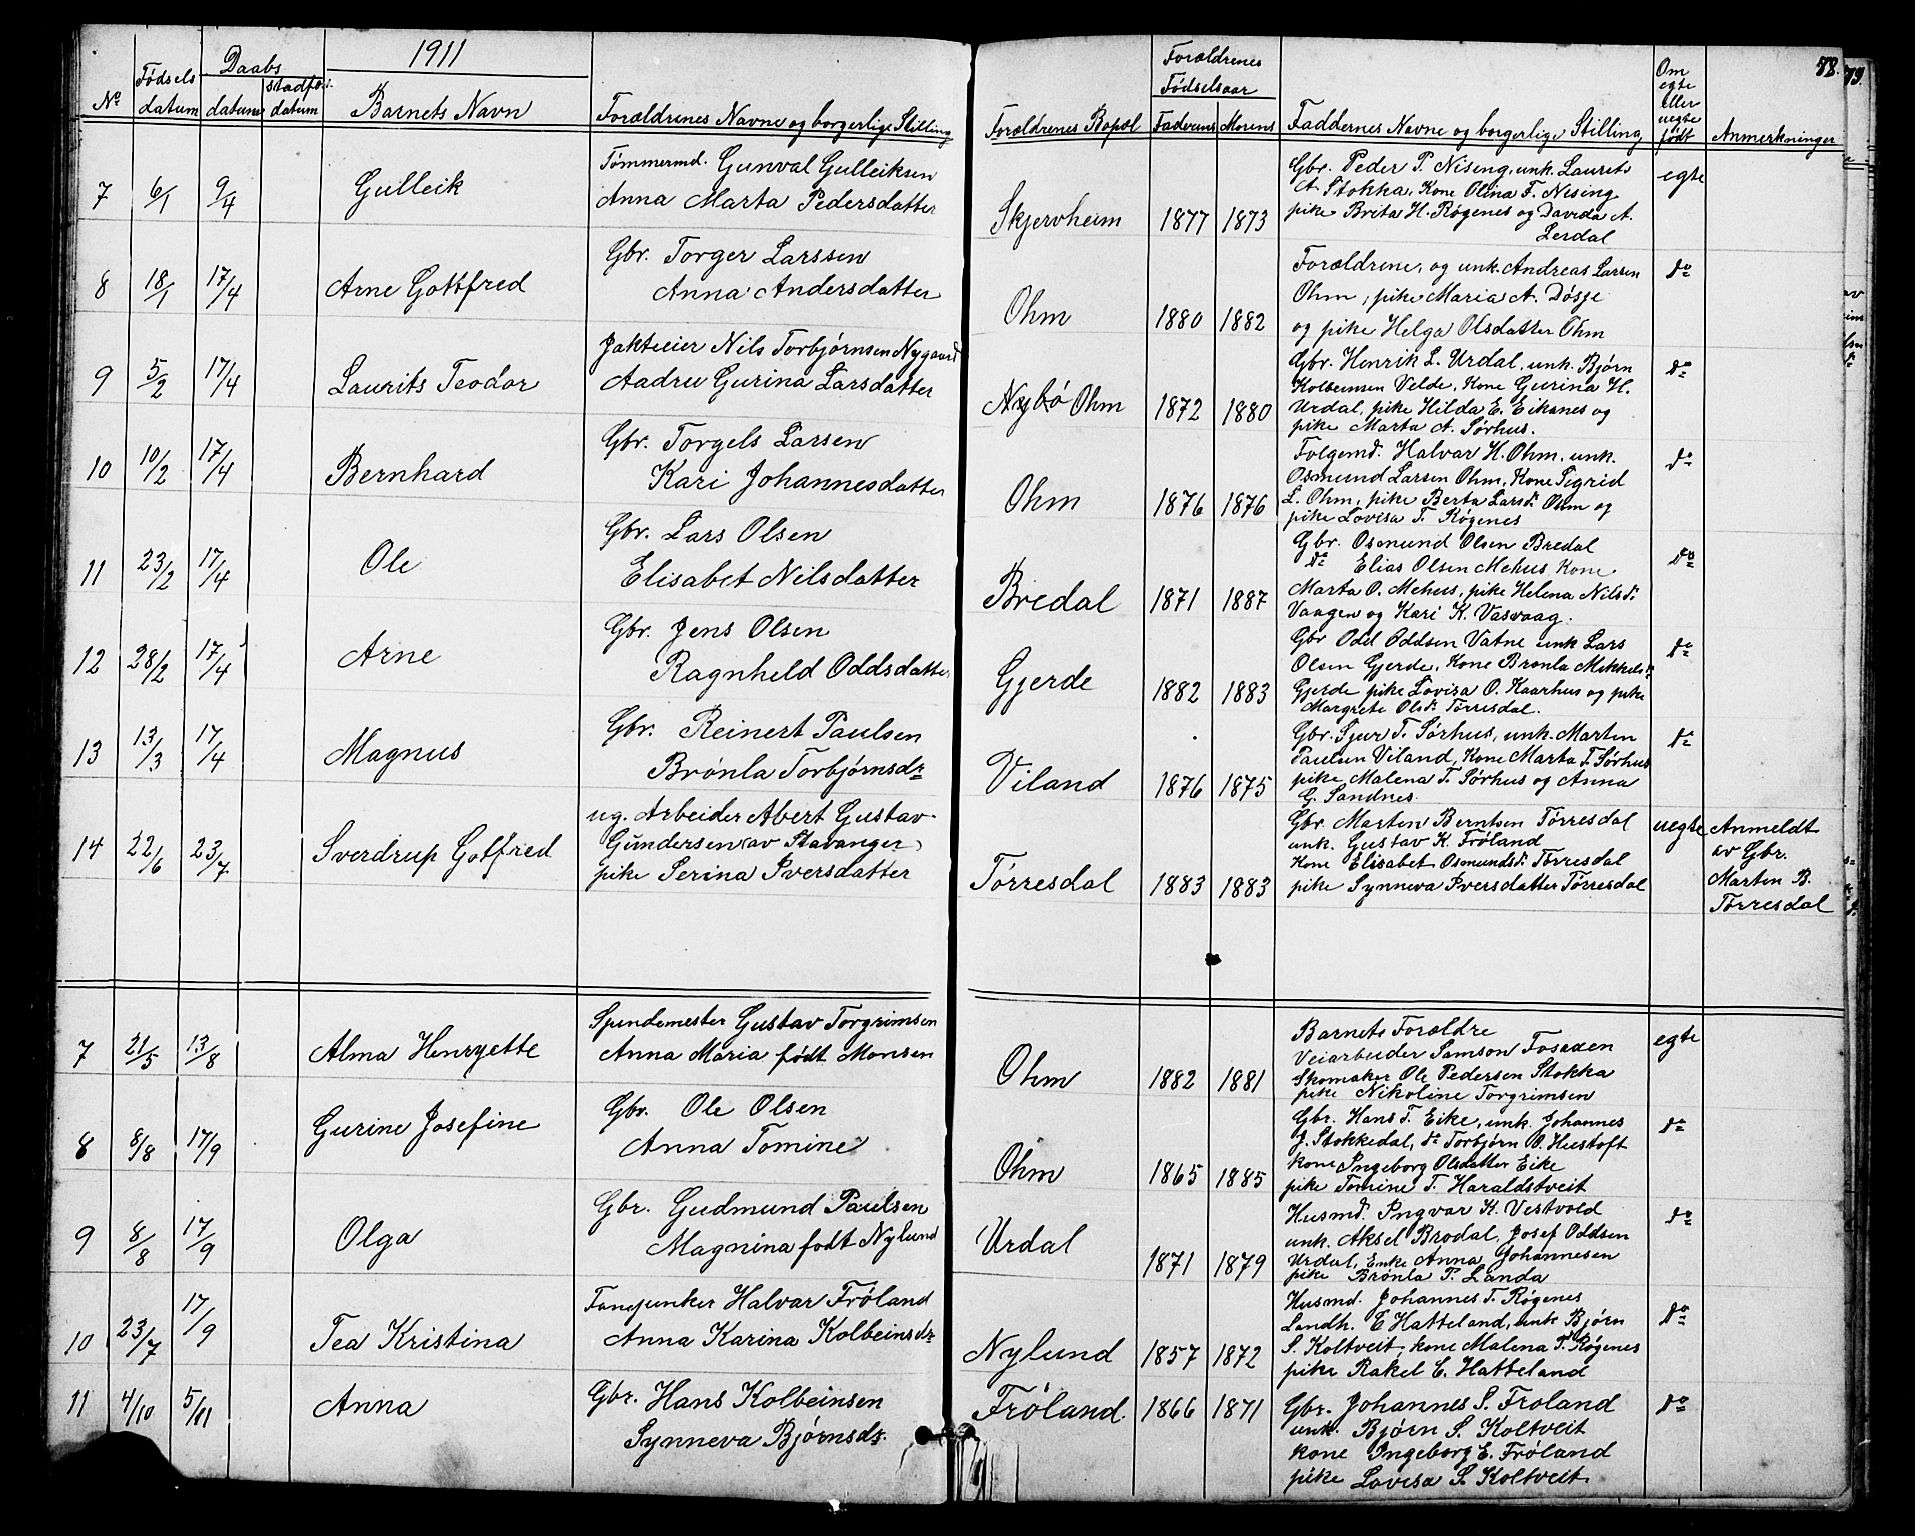 1911
Nr
Fødsels
datum
Daabs
datum
stadfs.
datum
Barnets Navn
Forældrenes Navne og borgerlige Stilling
Forældrenes Bopæl
Forældrenes
Fødselsaar
Faderens
Morens
Faddernes Navne og borgerlige Stilling
Om
egte
eller
uegte
født
Anmerkninger
78.
79.
7 6/1 9/4 Gulleik
Tømmermd. Gunval Gulleiksen
Anna Marta Pedersdatter
Skjervheim 1877 1873
Gbr. Peder P. Nising, unk. Laurits
A. Stokka, Kone Olina F. Nising
pike Brita H. Røgenes og Davida A.
Lerdal
egte
8 18/1 17/4 Arne Gottfred
Gbr. Torger Larssen
Anna Andersdatter
Ohm 1880 1882
Forældrene, og unk. Andreas Larsen
Ohm, pike Maria A. Døsje
og pike Helga Olsdatter Ohm
do
9 5/2 17/4 Laurits Teodor
Jakteeier Nils Torbjørnsen Nygaard
Aadru Gurina Larsdatter
Nybø Ohm 1872 1880
Gbr. Henrik L. Urdal, unk. Bjørn
Kolbeinsen Velde, Kone Gurina H.
Urdal, pike Hilda E. Eiksnes og
pike Marta A. Sørhus.
do
10 10/2 17/4 Bernhard
Gbr. Torgels Larsen
Kari Johannesdatter
Ohm 1876 1876
Folgemd. Halvar H. Ohm, unk.
Osmund Larsen Ohm, Kone Sigrid
L. Ohm, pike Berta Larsd. Ohm og
pike Lovisa T. Røgenes
do
11 23/2 17/4 Ole
Gbr. Lars Olsen
Elisabet Nilsdatter
Bredal 1871 1887
Gbr. Osmund Olsen Bredal
do Elias Olsen Mehus Kone
Marta O. Mehus, pike Helena Nilsd.
Vaagen og Kari K. Vasvaag.
do
12 28/2 17/4 Arne
Gbr. Jens Olsen
Ragnheld Oddsdatter
Gjerde 1882 1883
Gbr Odd Oddsen Vatne unk Lars
Olsen Gjerde, Kone Brønla Mikkelsd.
Gjerde pike Lovisa O. Kaarhus og pike
Margrete Olsd. Tørresdal.
do
13 13/3 17/4 Magnus
Gbr. Reinert Paulsen
Brønla Torbjørnsdr
Viland 1876 1875
Gbr. Sjur T. Sørhus, unk. Marten
Paulsen Viland, Kone Marta T. Sørhus
pike Malena T. Sørhus og Anna
G. Sandnes.
do
14 22/6 23/7 Sverdrup Gotfred
ug. Arbeider Abert Gustav
Gundersen (av Stavanger)
pike Serina Iversdatter
Tørresdal 1883 1883
Gbr. Marten Berntsen Tørresdal
unk. Gustav K. Frøland
Kone Elisabet Osmundsd. Tørresdal
pike Synneva Iversdatter Tørresdal
uegte
Anmeldt
av Gbr.
Marten B.
Tørresdal
7 21/5 13/8 Alma Henryette
Spindemester Gustav Torgrimsen
Anna Maria født Monsen
Ohm 1882 1881
Barnets Forældre
Veiarbeider Samson Fosaaen
Skomaker Ole Pedersen Stokka
pike Nikoline Torgrimsen
egte
8 8/8 17/9 Gurine Josefine
Gbr. Ole Olsen
Anna Tomine
Ohm 1865 1885
Gbr. Hans T. Eike, unk. Johannes
J. Stokkedal, do Torbjørn O. Hustoft
kone Ingeborg Olsdatter Eike
pike Tomine T. Haraldstveit
do
9 8/8 17/9 Olga
Gbr. Gudmund Paulsen
Magnina født Nylund
Urdal 1871 1879
Husmd. Ingvar K. Vestvold
unk. Aksel Brodal, Josef Oddsen
Urdal, Enke Anna Johannesen
pike Brønla P. Landa
do
10 23/7 17/9 Tea Kristina
Fanejunker Halvar Frøland
Anna Karina Kolbeinsdr
Nylund 1857 1872
Husmd. Johannes T. Røgenes
Landh. E Hatteland, unk Bjørn
S. Koltveit, kone Malena T. Røgenes
pike Rakel E. Hatteland
do
11 4/10 5/11 Anna
Gbr. Hans Kolbeinsen
Synneva Bjørnsdr.
Frøland. 1866 1871
Gbr. Johannes S. Frøland
unk. Bjørn S. Koltveit
kone Ingeborg E. Frøland
pike Lovisa S. Koltveit.
do